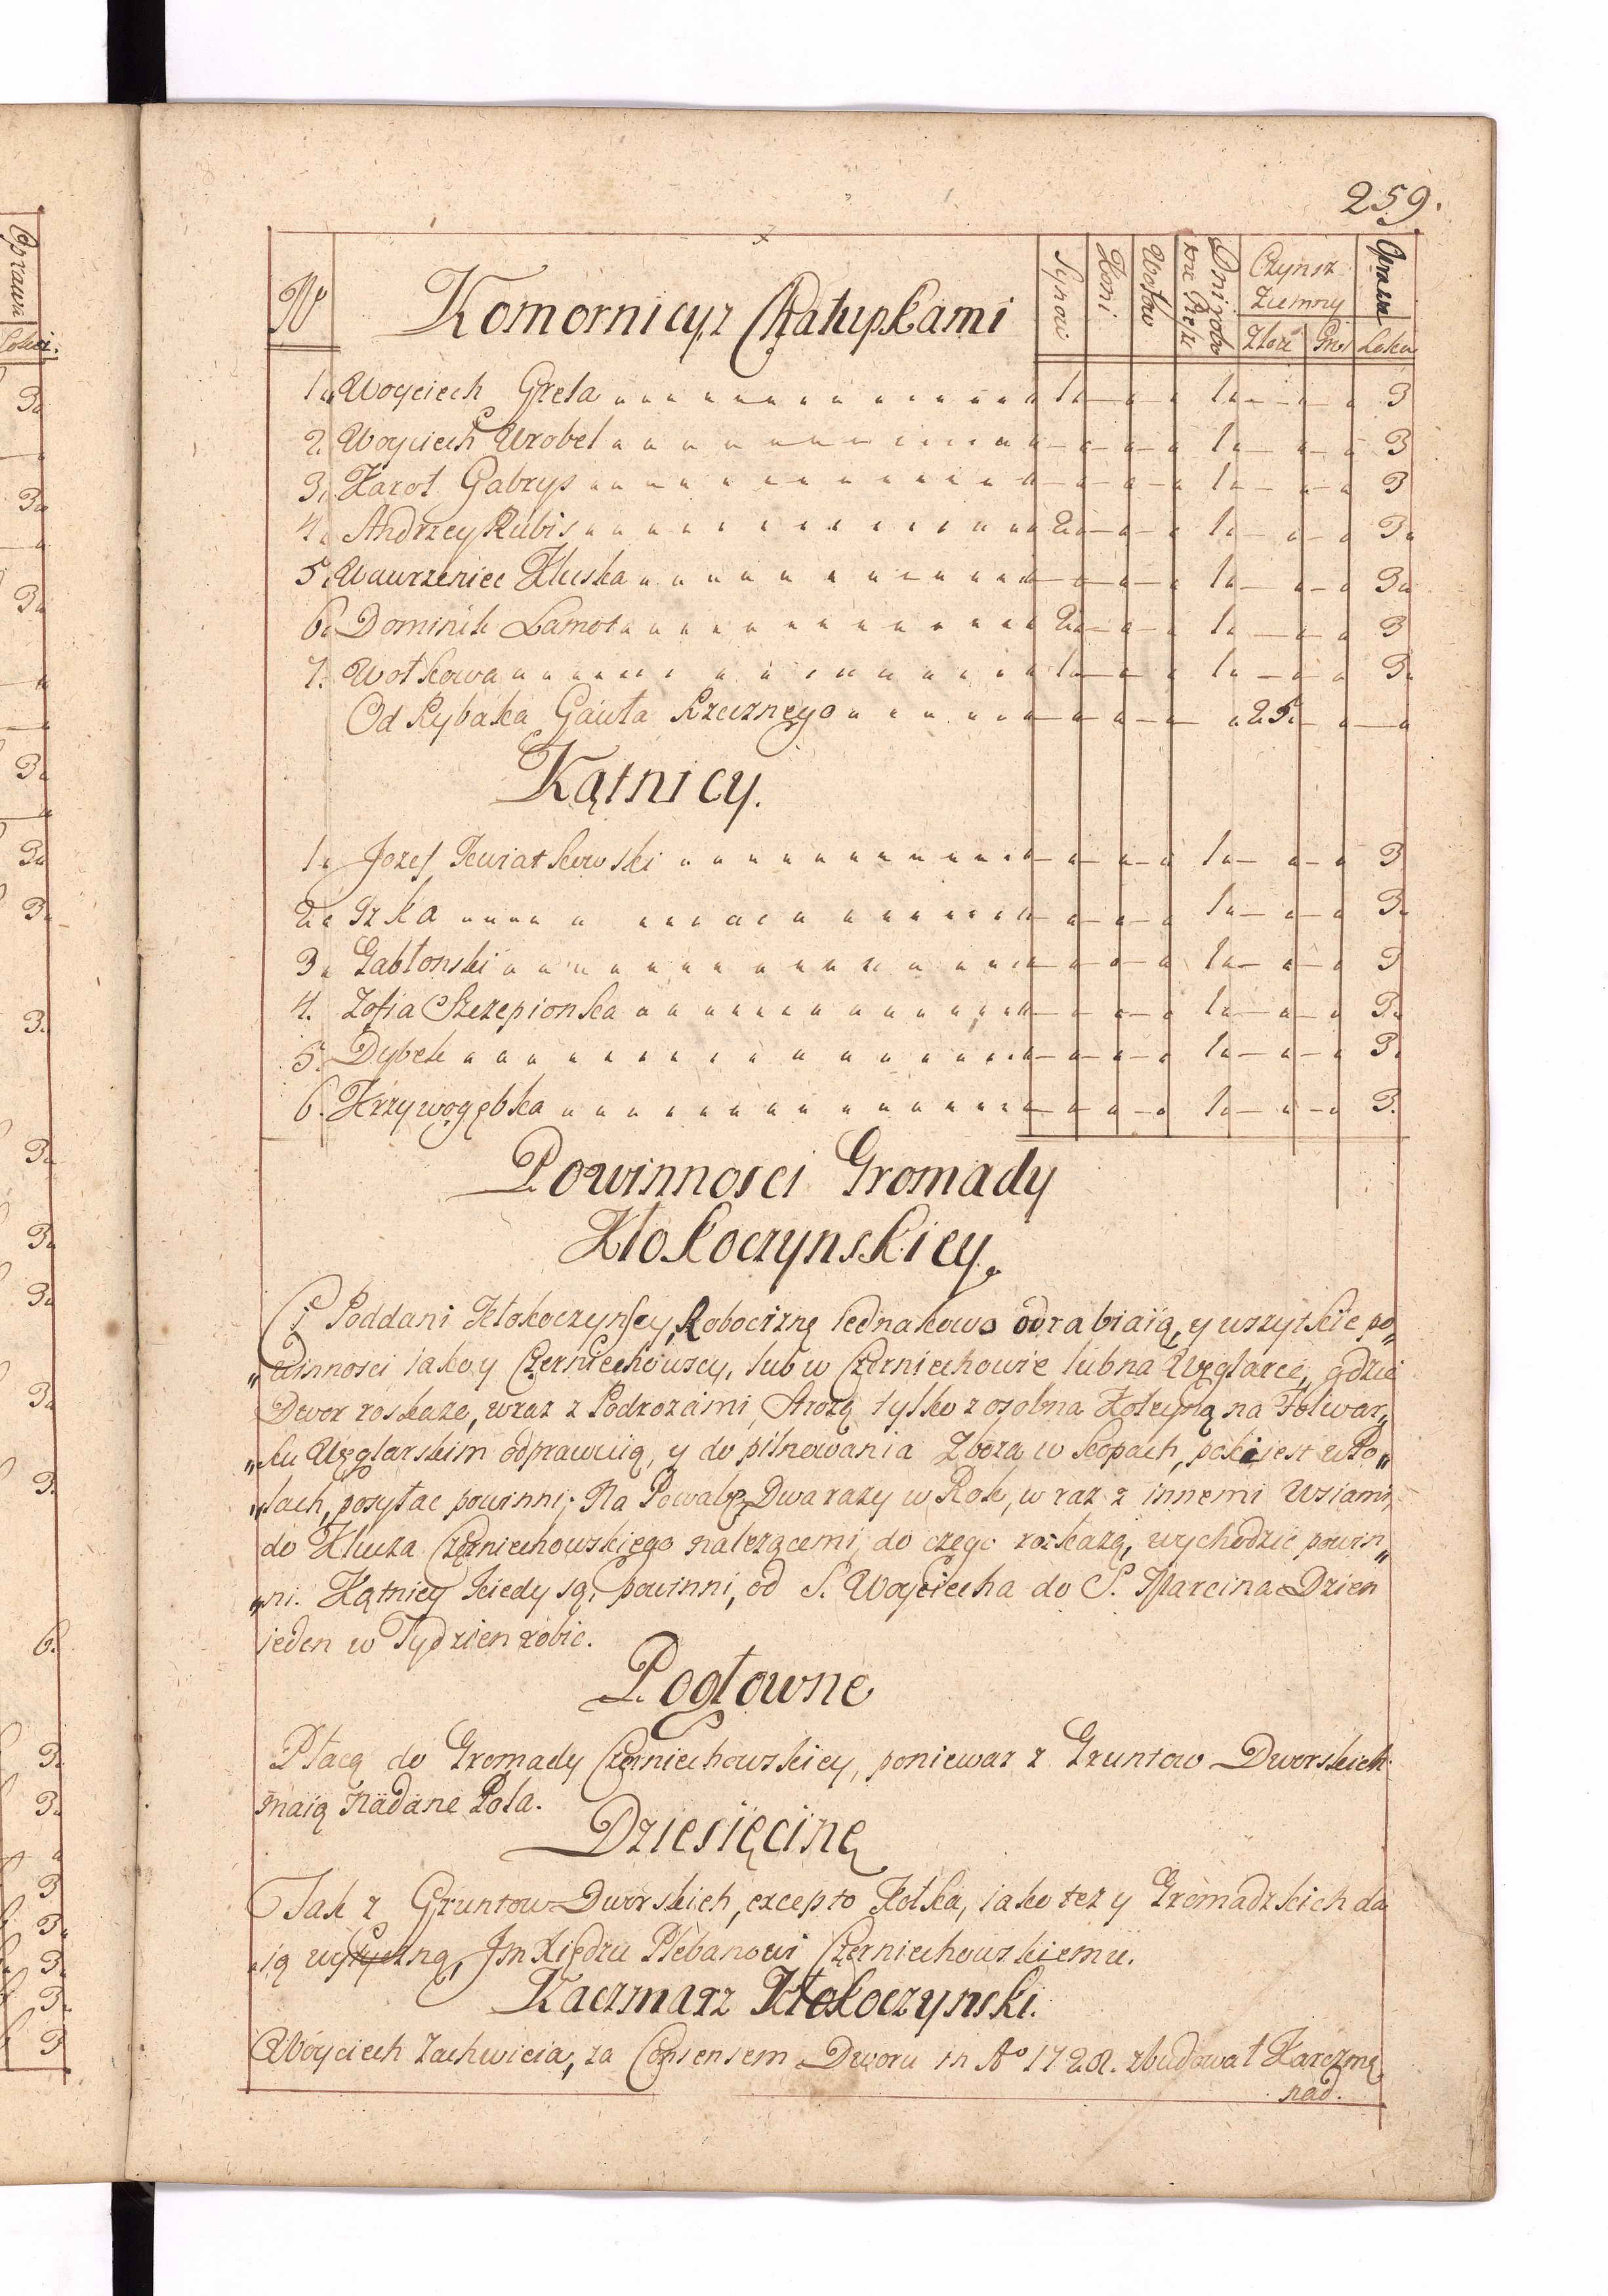 259.
No Komornicy z Chałupkami Synow Koni Wołow Dni robią bez Cie/t Czynsz Ziemny Złote Gro: Oprawa Łokci
1. Woyciech Greta 1. 1. 3
2. Woyciech Wrobel 1. 3
3. Karol Gabryś 1. 3
4. Andrzey Kubis 2. 1. 3.
5. Wawrzeniec Kluska 1. 3.
6. Dominik Lamot 2. 1. 3
7. Wołkowa 1. 1. 3.
Od Rybaka Gawła Rzecznego 25.
Kątnicy.
1. Jozef Kwiatkowski 1. 3
2. Izka 1. 3.
3. Jabłonski 1. 3
4. Zofia Szczepionka 1. 3.
5. Dybek 1. 3.
6. Krzywogębka 1. 3.
Powinnosci Gromady
Kłokoczynskiey.
Ci Poddani Kłokoczynscy, Robociznę Iednakowo odrabiaią, y wszytkie po„
„winnosci iako y Czerniechowscy, lub w Czerniechowie lub na Węglarce, gdzie
Dwor roskaże, wraz z Podrożami, Strożą tylko z osobna Koleyną na Folwar„
„ku Węglarskim odprawuią, y do pilnowania Zboża w kopach, poki iest w Po„
„lach, posyłac powinni; Na Powabę Dwa razy w Rok, wraz z innemi Wsiami,
do Klucza Czerniechowskiego należącemi, do czego roskażą, wychodzic powin„
„ni. Kątnicy kiedy są, powinni, od S. Woyciecha do S. Marcina Dzien
jeden w Tydzien robic.
Pogłowne
Płacą do Gromady Czerniechowskiey, poniewaz z Gruntow Dworskich
maią nadane Pola.
Dziesięcinę
Jak z Gruntow Dworskich, excepto Kołka, iako też y Gromadzkich da
„ią wytyczną, Jm Xiędzu Plebanowi Czerniechowskiemu.
Kaczmarz Kłokoczynski.
Woyciech Zachwieia, za Consensem Dworu in Ao 1728. zbudował Karczmę
nad.